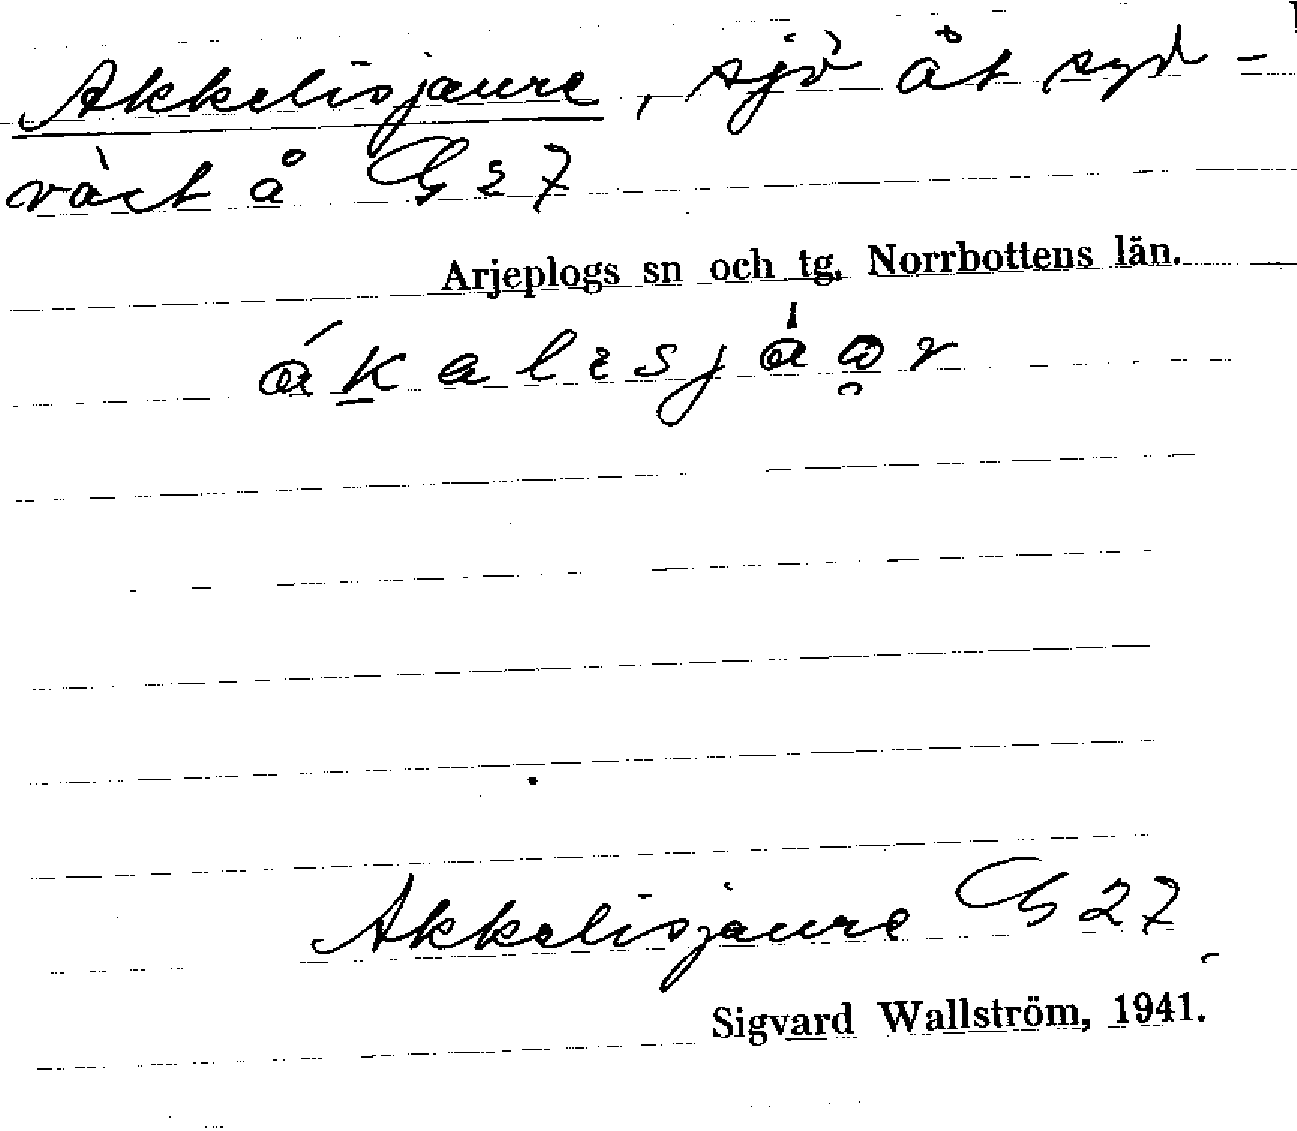 Akkelisjaure, sjö åt syd-
väst å G 27
Arjeplogs sn och tg, Norrbottens län.
Akkelisjaure G 27
Sigvard Wallström, 1941.